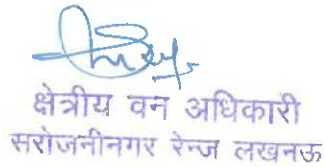 क्षेत्रीय वन अधिकारी
सरोजनीनगर रेन्ज लखनऊ